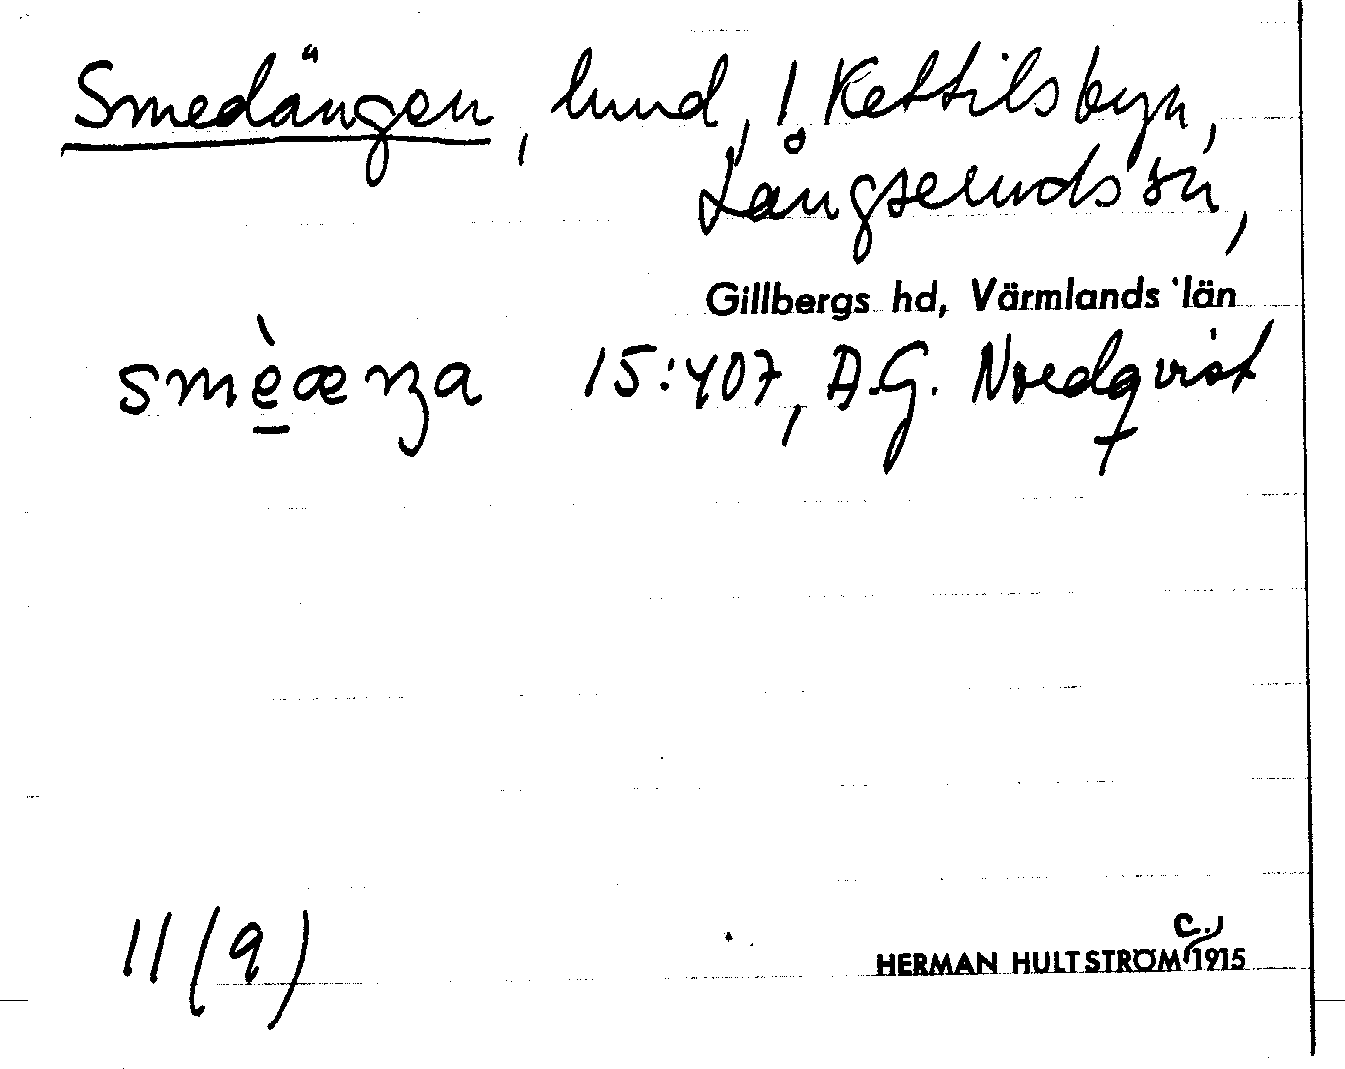 Smedängen, lund, i Kettilsbyn,
Långseruds sn,
Gillbergs hd, Värmlands län
smèæŋa 15:407, A.G. Nordqvist
11(9)
c.
HERMAN HULTSTRÖM 1915